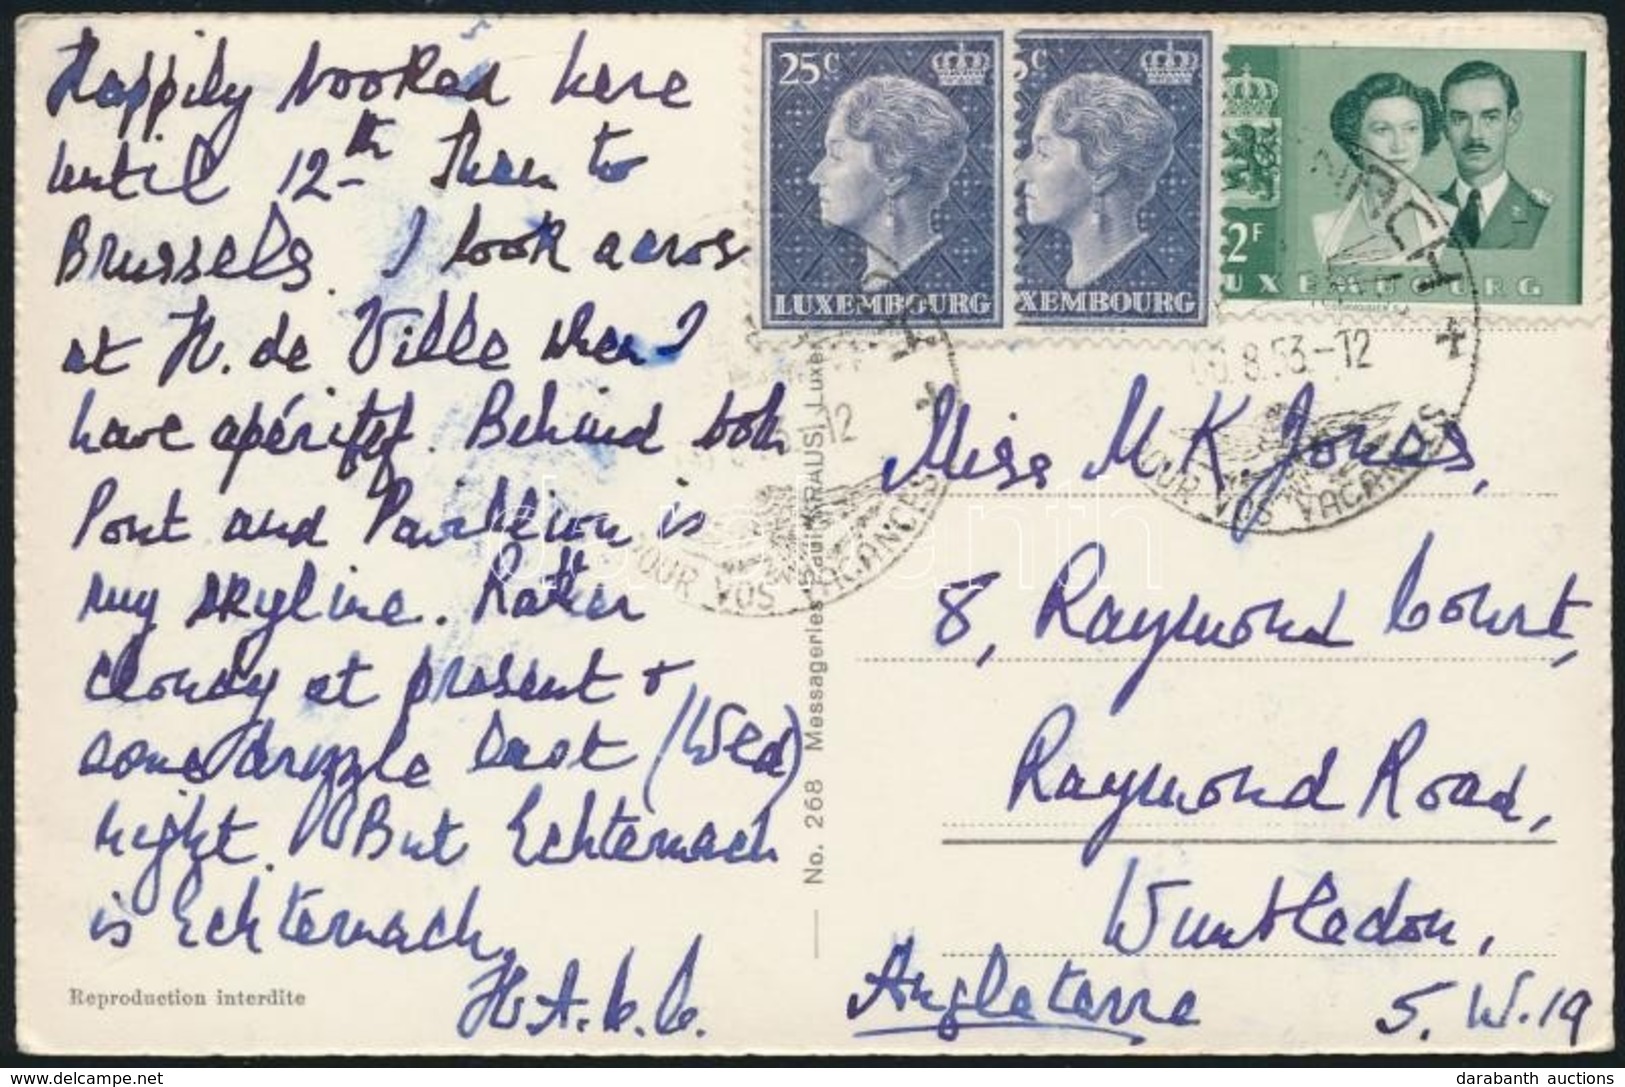 Happily booked here
until 12th then to
Brussels. I look across
at H. de Ville when I
have apéritif. Behind both
Pont and Pavilion is
my skyline. Rather
cloudy at present &
some drizzle last (Wed)
night. But Echternach
is Echternach.
H.A.C.C.
Reproduction interdite
No. 268 Messageries Paul KRAUS, Luxem
25c
LUXEMBOURG
5c
XEMBOURG
2F
LUXEMBOURG
8.53.-12
12
POUR VOS VACANCES
OUR VOS VACANCES
Miss M. K. Jones,
8, Raymond Court,
Raymond Road,
Wimbledon,
S.W.19
Angleterre
darabanth
delcampe.net
darabanth auctions